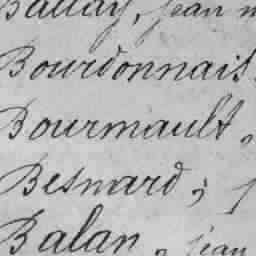 Ballay, jean
Bourdonnais
Bourmault,
Besnard;
Balan, jean